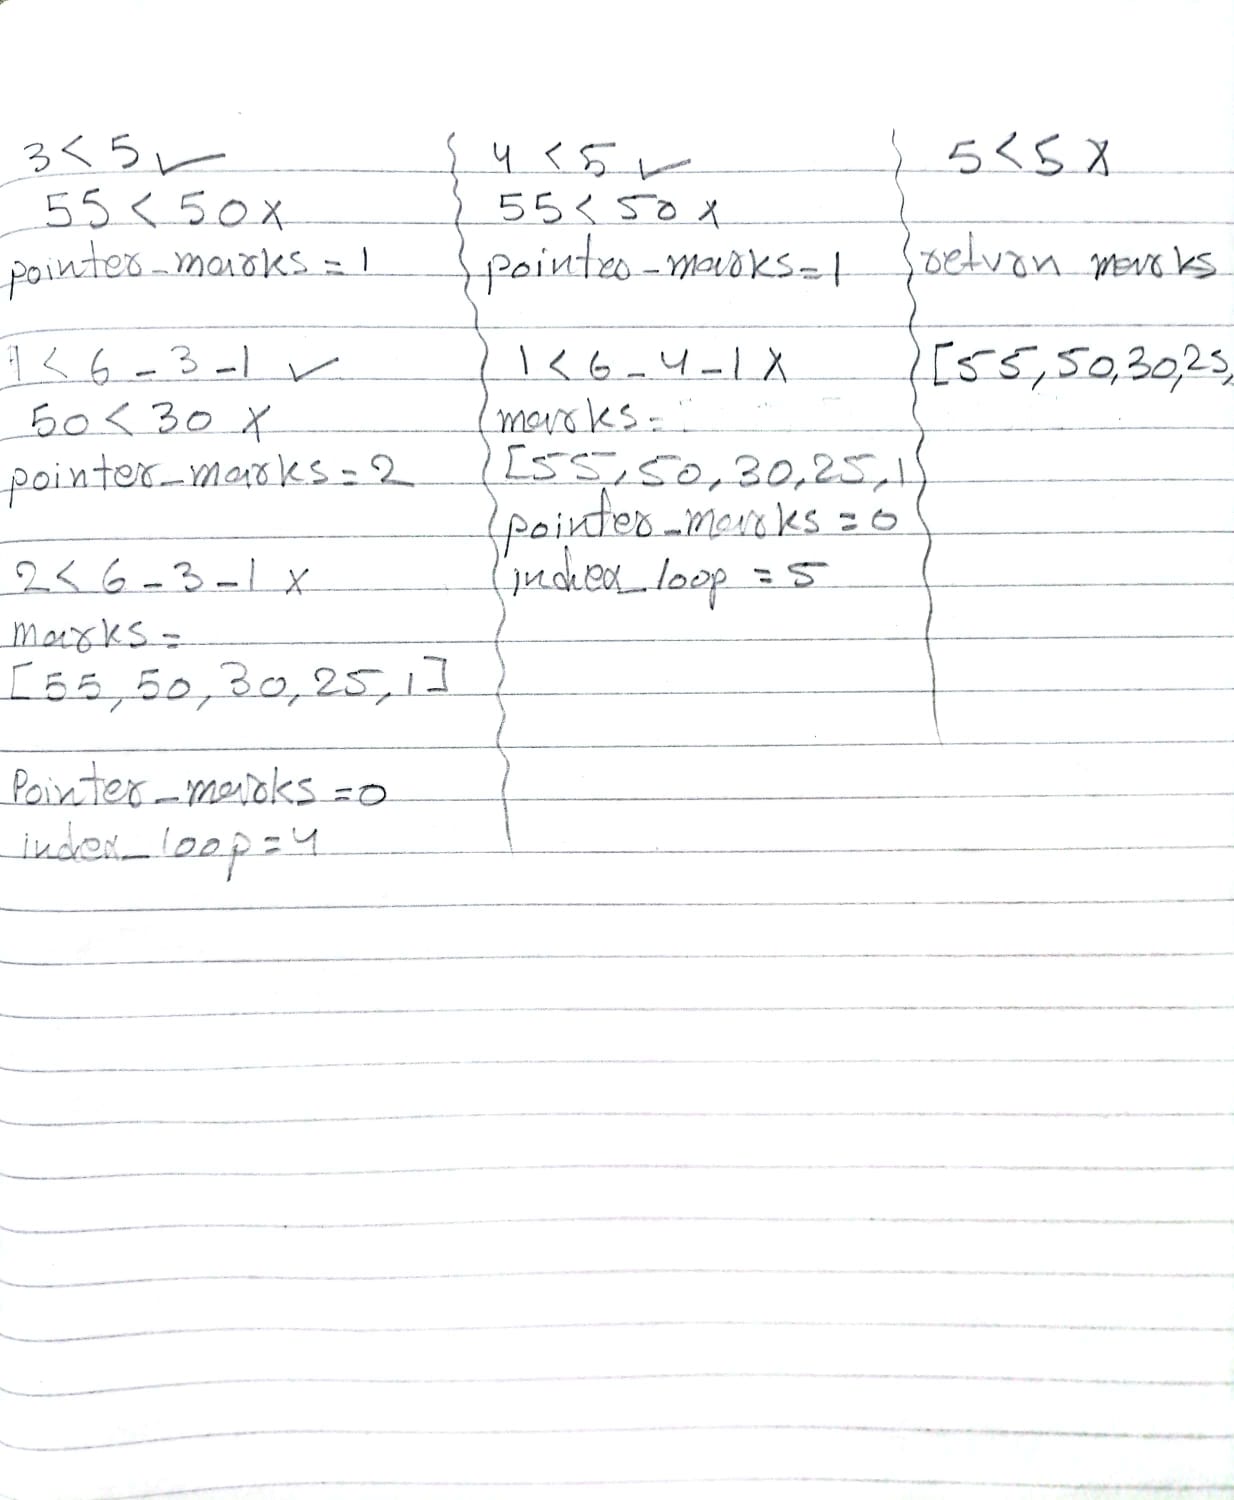 3 < 5 ✓
55 < 50 x
pointer_marks = 1
1 < 6 - 3 - 1 ✓
50 < 30 x
pointer_marks = 2
2 < 6 - 3 - 1 x
marks =
[55, 50, 30, 25, 1]
Pointer_marks = 0
index_loop = 4
4 < 5 ✓
55 < 50 x
pointer_marks = 1
1 < 6 - 4 - 1 x
marks =
[55, 50, 30, 25, 1]
pointer_marks = 0
index_loop = 5
5 < 5 x
return marks
[55, 50, 30, 25,